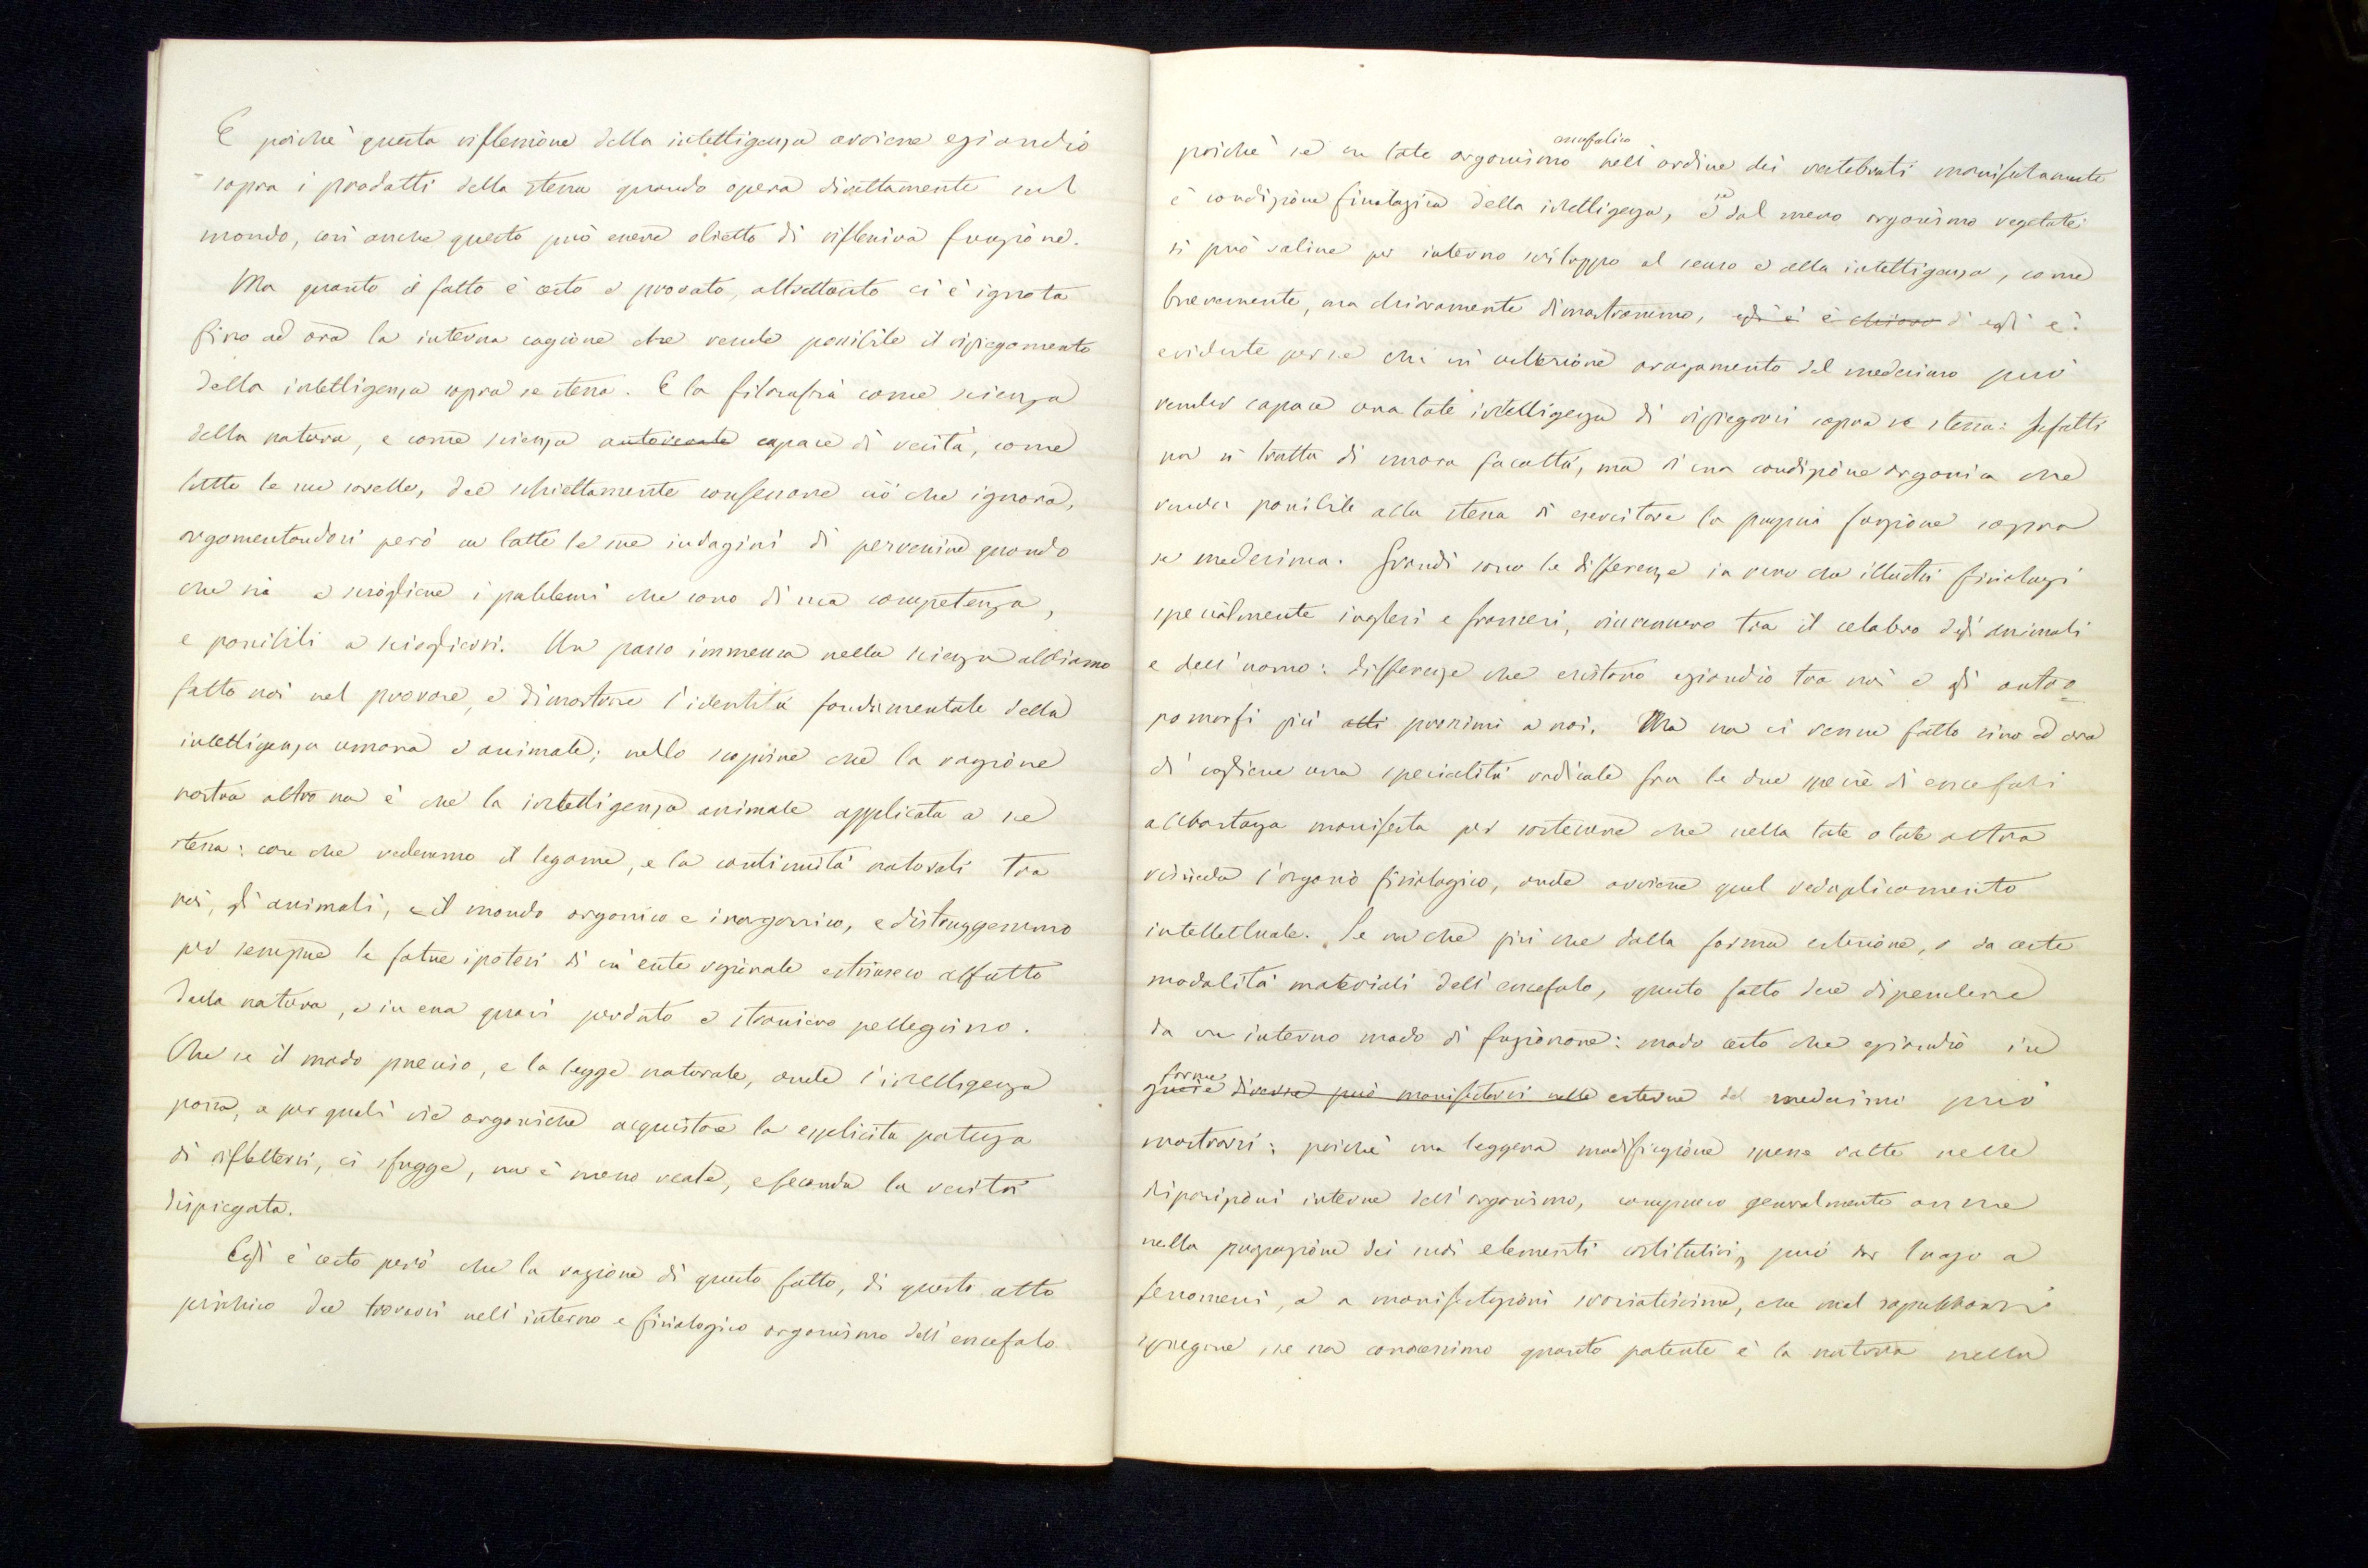 E poichè questa riflessione della intelligenza avviene eziandio
sopra i prodotti della stessa quando opera direttamente sul
mondo, così anche questo può essere obietto di riflessiva funzione.
Ma quanto il fatto è certo e provato, altrettanto ci è ignota
fino ad ora la interna cagione che rende possibile il ripiegamento
della intelligenza sopra se stessa. E la filosofia come scienza
della natura, e come scienza capace di verità, come
tutte le sue sorelle, dee schiettamente confessare ciò che ignora,
argomentandosi però con tutte le sue indagini di pervenire quando
che sia a sciogliere i problemi che sono di sua competenza,
e possibili a sciogliersi. Un passo immenso nella scienza abbiamo
fatto noi nel provare, e dimostrare l'identità fondamentale della
intelligenza umana e animale; nello scoprire che la ragione
nostra altro non è che la intelligenza animale applicata a se
stessa: così che vedemmo il legame, e la continuità naturali tra
noi, gli animali, e il mondo organico e inorganico, e distruggemmo
per sempre le fatue ipotesi di un ente razionale estrinseco affatto
dalla natura, e in essa quasi perduto e straniero pellegrino.
Che se il modo preciso, e la legge naturale, onde l'intelligenza
possa, e per quali vie organiche acquistare la esplicita potenza
di riflettersi, ci sfugge, non è meno reale, e secondo la verità
dispiegata.
Egli è certo però che la ragione di questo fatto, di questo atto
psichico dee trovarsi nell'interno e fisiologico organismo dell'encefalo
poichè se un tale organismo encefalico nell'ordine dei vertebrati manifestamente
è condizione fisiologica della intelligenza, e se dal mero organismo vegetale
si può salire per interno sviluppo al senso e alla intelligenza, come
brevemente, ma chiaramente dimostrammo, egli è è chiaro egli è
evidente per se che un ulteriore organamento del medesimo può
render capace una tale intelligenza di ripiegarsi sopra se stessa: Infatti
non si tratta di nuova facoltà, ma di una condizione organica che
renda possibile alla stessa di esercitare la propria funzione sopra
se medesima. Grandi sono le differenze in vero che illustri fisiologi
specialmente inglesi e francesi, rinvennero tra il celabro degli animali
e dell'uomo: differenze che esistono eziandio tra noi e gli antro=
pomorfi più prossimi a noi. Ma non ci venne fatto sino ad ora
di cogliere una specialità radicale fra le due specie di encefali
abbastanza manifesta per sostenere che nella tale o tale altra
risieda l'organo fisiologico, onde avviene quel reduplicamento
intellettuale. Se non che più che dalla forma esteriore, o da certe
modalità materiali dell'encefalo, questo fatto dee dipendere
da un interno modo di funzionare: modo certo che eziandio in
forme diverse può manifestarsi nelle esterne del medesimo può
mostrarsi: poichè una leggera modificazione spesse volte nelle
disposizioni interne dell'organismo, compreso generalmente anche
nella proporzione dei suoi elementi costitutivi, può dar luogo a
fenomeni, e a manifestazioni svariatissime, che mal saprebbonsi
spiegare, se non conoscessimo quanto potente è la natura nella